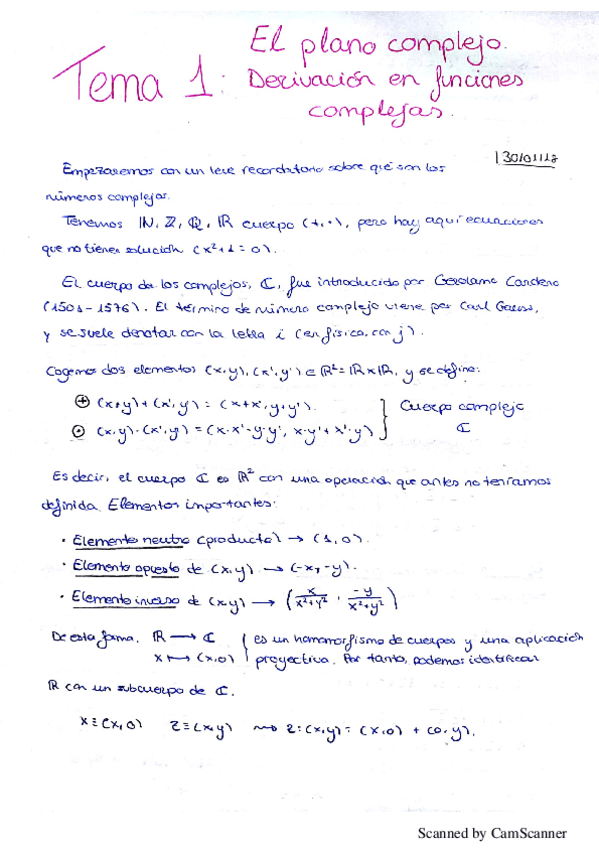 El plano complejo.
Tema 1: Derivación en funciones
complejas.
30/01/17
Empezaremos con un leve recordatorio sobre qué son los
números complejos.
Tenemos ℕ, ℤ, ℚ, ℝ cuerpo (+,·), pero hay aquí ecuaciones
que no tienen solución (x²+1=0).
El cuerpo de los complejos, ℂ, fue introducido por Gerolamo Cardano
(1501-1576). El término de número complejo viene por Carl Gauss,
y se suele denotar con la letra i (en física, con j).
Cogemos dos elementos (x,y), (x',y') ∈ ℝ² = ℝxℝ, y se define:
⊕ (x+y)+(x',y') = (x+x', y+y').
⊙ (x,y)·(x',y') = (x·x'-y·y', x·y'+x'·y)
} Cuerpo complejo
ℂ
Es decir, el cuerpo ℂ es ℝ² con una operación que antes no teníamos
definida. Elementos importantes:
· Elemento neutro (producto) → (1,0).
· Elemento opuesto de (x,y) → (-x,-y).
· Elemento inverso de (x,y) → (x/(x²+y²), -y/(x²+y²))
De esta forma, ℝ → ℂ { es un homomorfismo de cuerpos y una aplicación
x ↦ (x,0) proyectiva. Por tanto, podemos identificar
ℝ con un subcuerpo de ℂ.
x≡(x,0) z≡(x,y) ⇝ z=(x,y)=(x,0)+(0,y).
Scanned by CamScanner